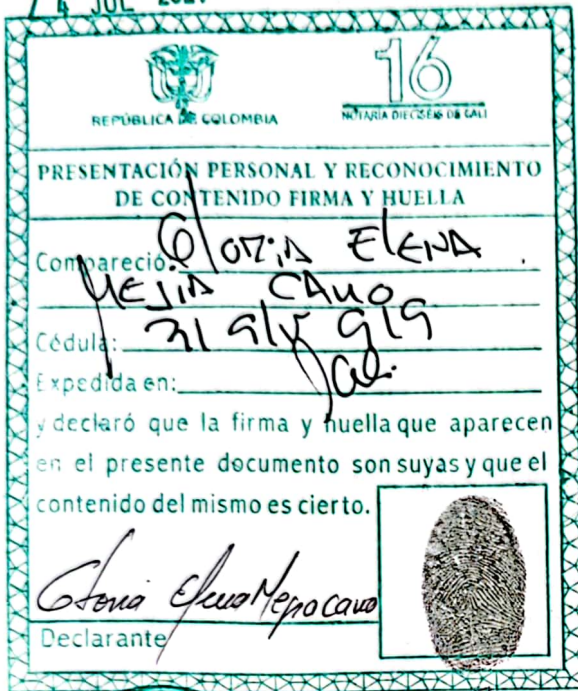 4 JUL
REPÚBLICA DE COLOMBIA
16
NOTARÍA DIECISÉIS DE CALI
PRESENTACIÓN PERSONAL Y RECONOCIMIENTO
DE CONTENIDO FIRMA Y HUELLA
Compareció: Gloria Elena
Mejia Cano
Cédula:
Expedida en:
y declaró que la firma y huella que aparecen
en el presente documento son suyas y que el
contenido del mismo es cierto.
Gloria Elena Mejia Cano
Declarante